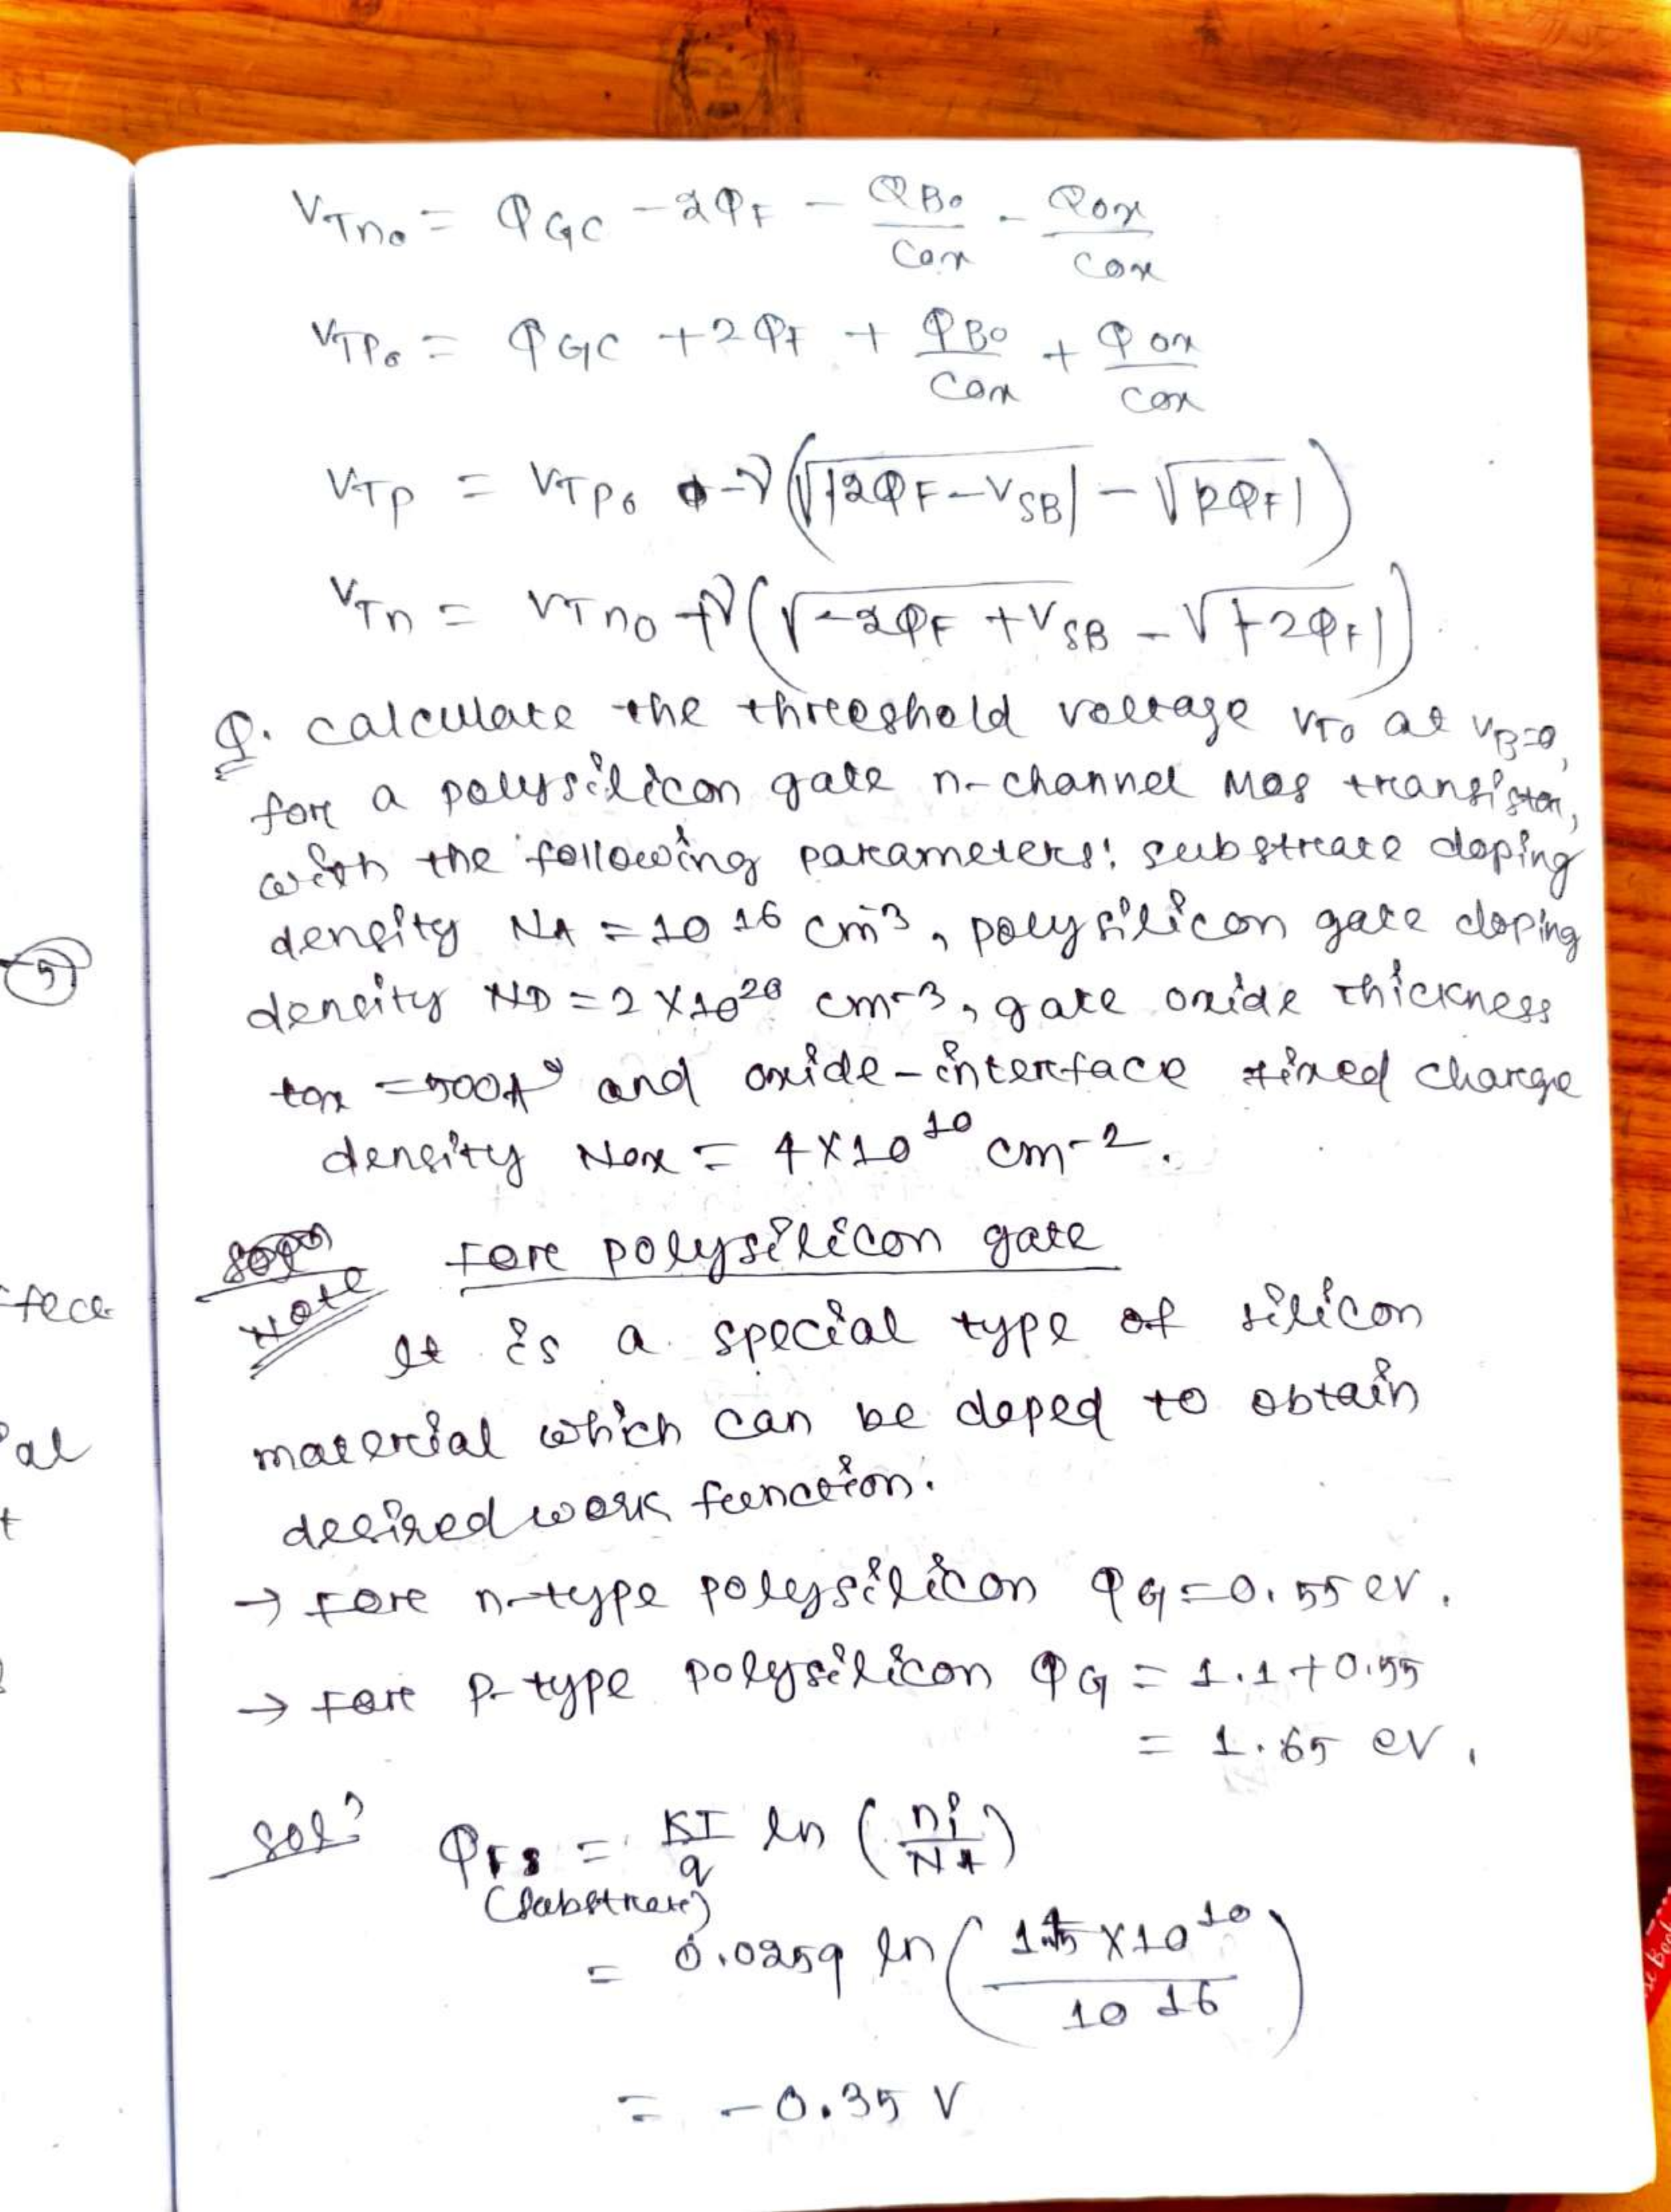 V_Tn0 = Φ_GC - 2Φ_F - Q_B0/C_ox - Q_ox/C_ox
V_TP0 = Φ_GC + 2Φ_F + Q_B0/C_ox + Q_ox/C_ox
V_TP = V_TP0 - γ(√|2Φ_F - V_SB| - √|2Φ_F|)
V_Tn = V_Tn0 + γ(√-2Φ_F + V_SB - √|-2Φ_F|)
Q. calculate the threeshold voltage V_T0 at V_B=0,
for a polysilicon gate n-channel Mos transistor,
with the following parameters: substrate doping
density N_A = 10^16 cm^-3, polysilicon gate doping
5
density N_D = 2 X 10^20 cm-3, gate oxide thickness
t_ox = 500A° and oxide-interface fixed charge
density N_ox = 4 X 10^10 cm-2.
Note For polysilicon gate
It is a special type of silicon
material which can be doped to obtain
al
desired work function.
t
→ For n-type polysilicon Φ_G = 0.55 ev.
→ For p-type polysilicon Φ_G = 1.1 + 0.55
= 1.65 ev.
Sol? Φ_FS = KT/q ln (ni/N_A)
(Substrate)
= 0.0259 ln (1.45 X 10^10 / 10^16)
= -0.35 V